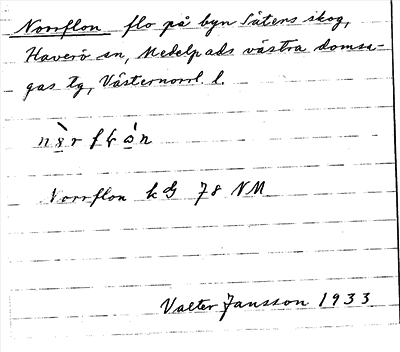 Norrflon flo på byn Såtens skog,
Haverö sn, Medelpads västra domsa-
gas tg, Västernorrl l.
Norrflon k G 78 NM
Valter Jansson 1933